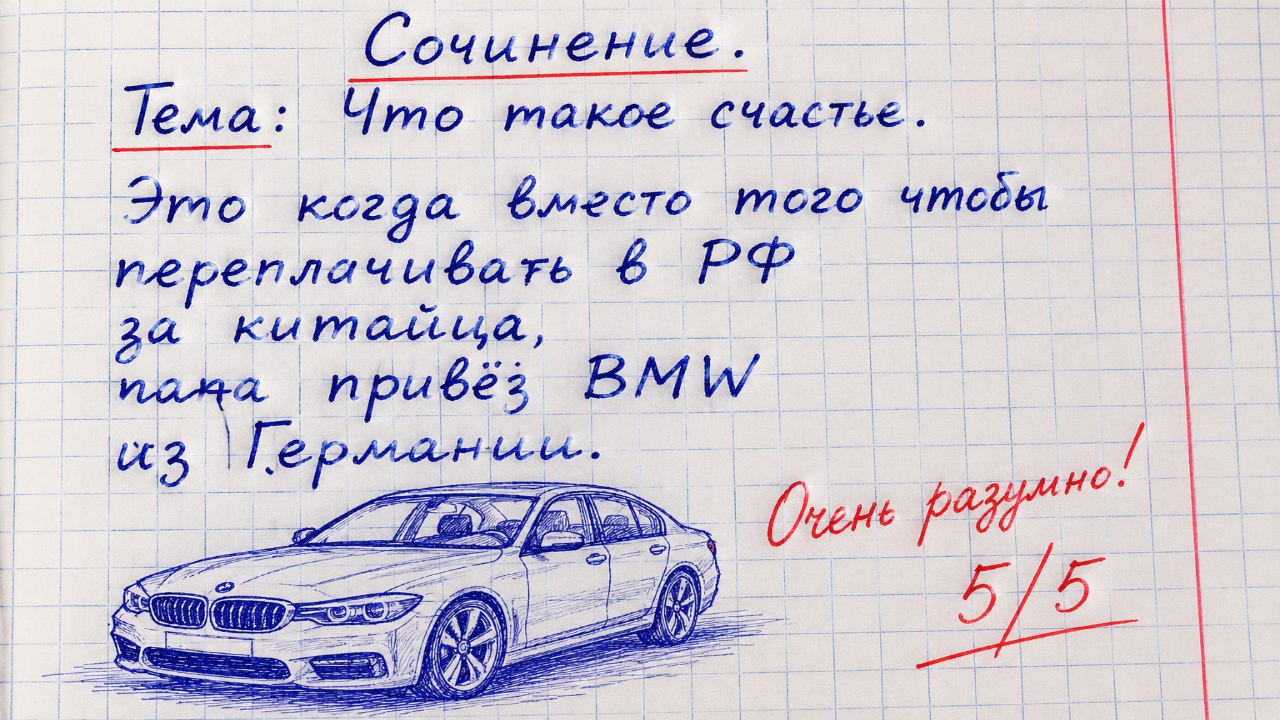 Сочинение.
Тема: Что такое счастье.
Это когда вместо того чтобы
переплачивать в РФ
за китайца,
папа привёз BMW
из Германии.
Очень разумно!
5/5